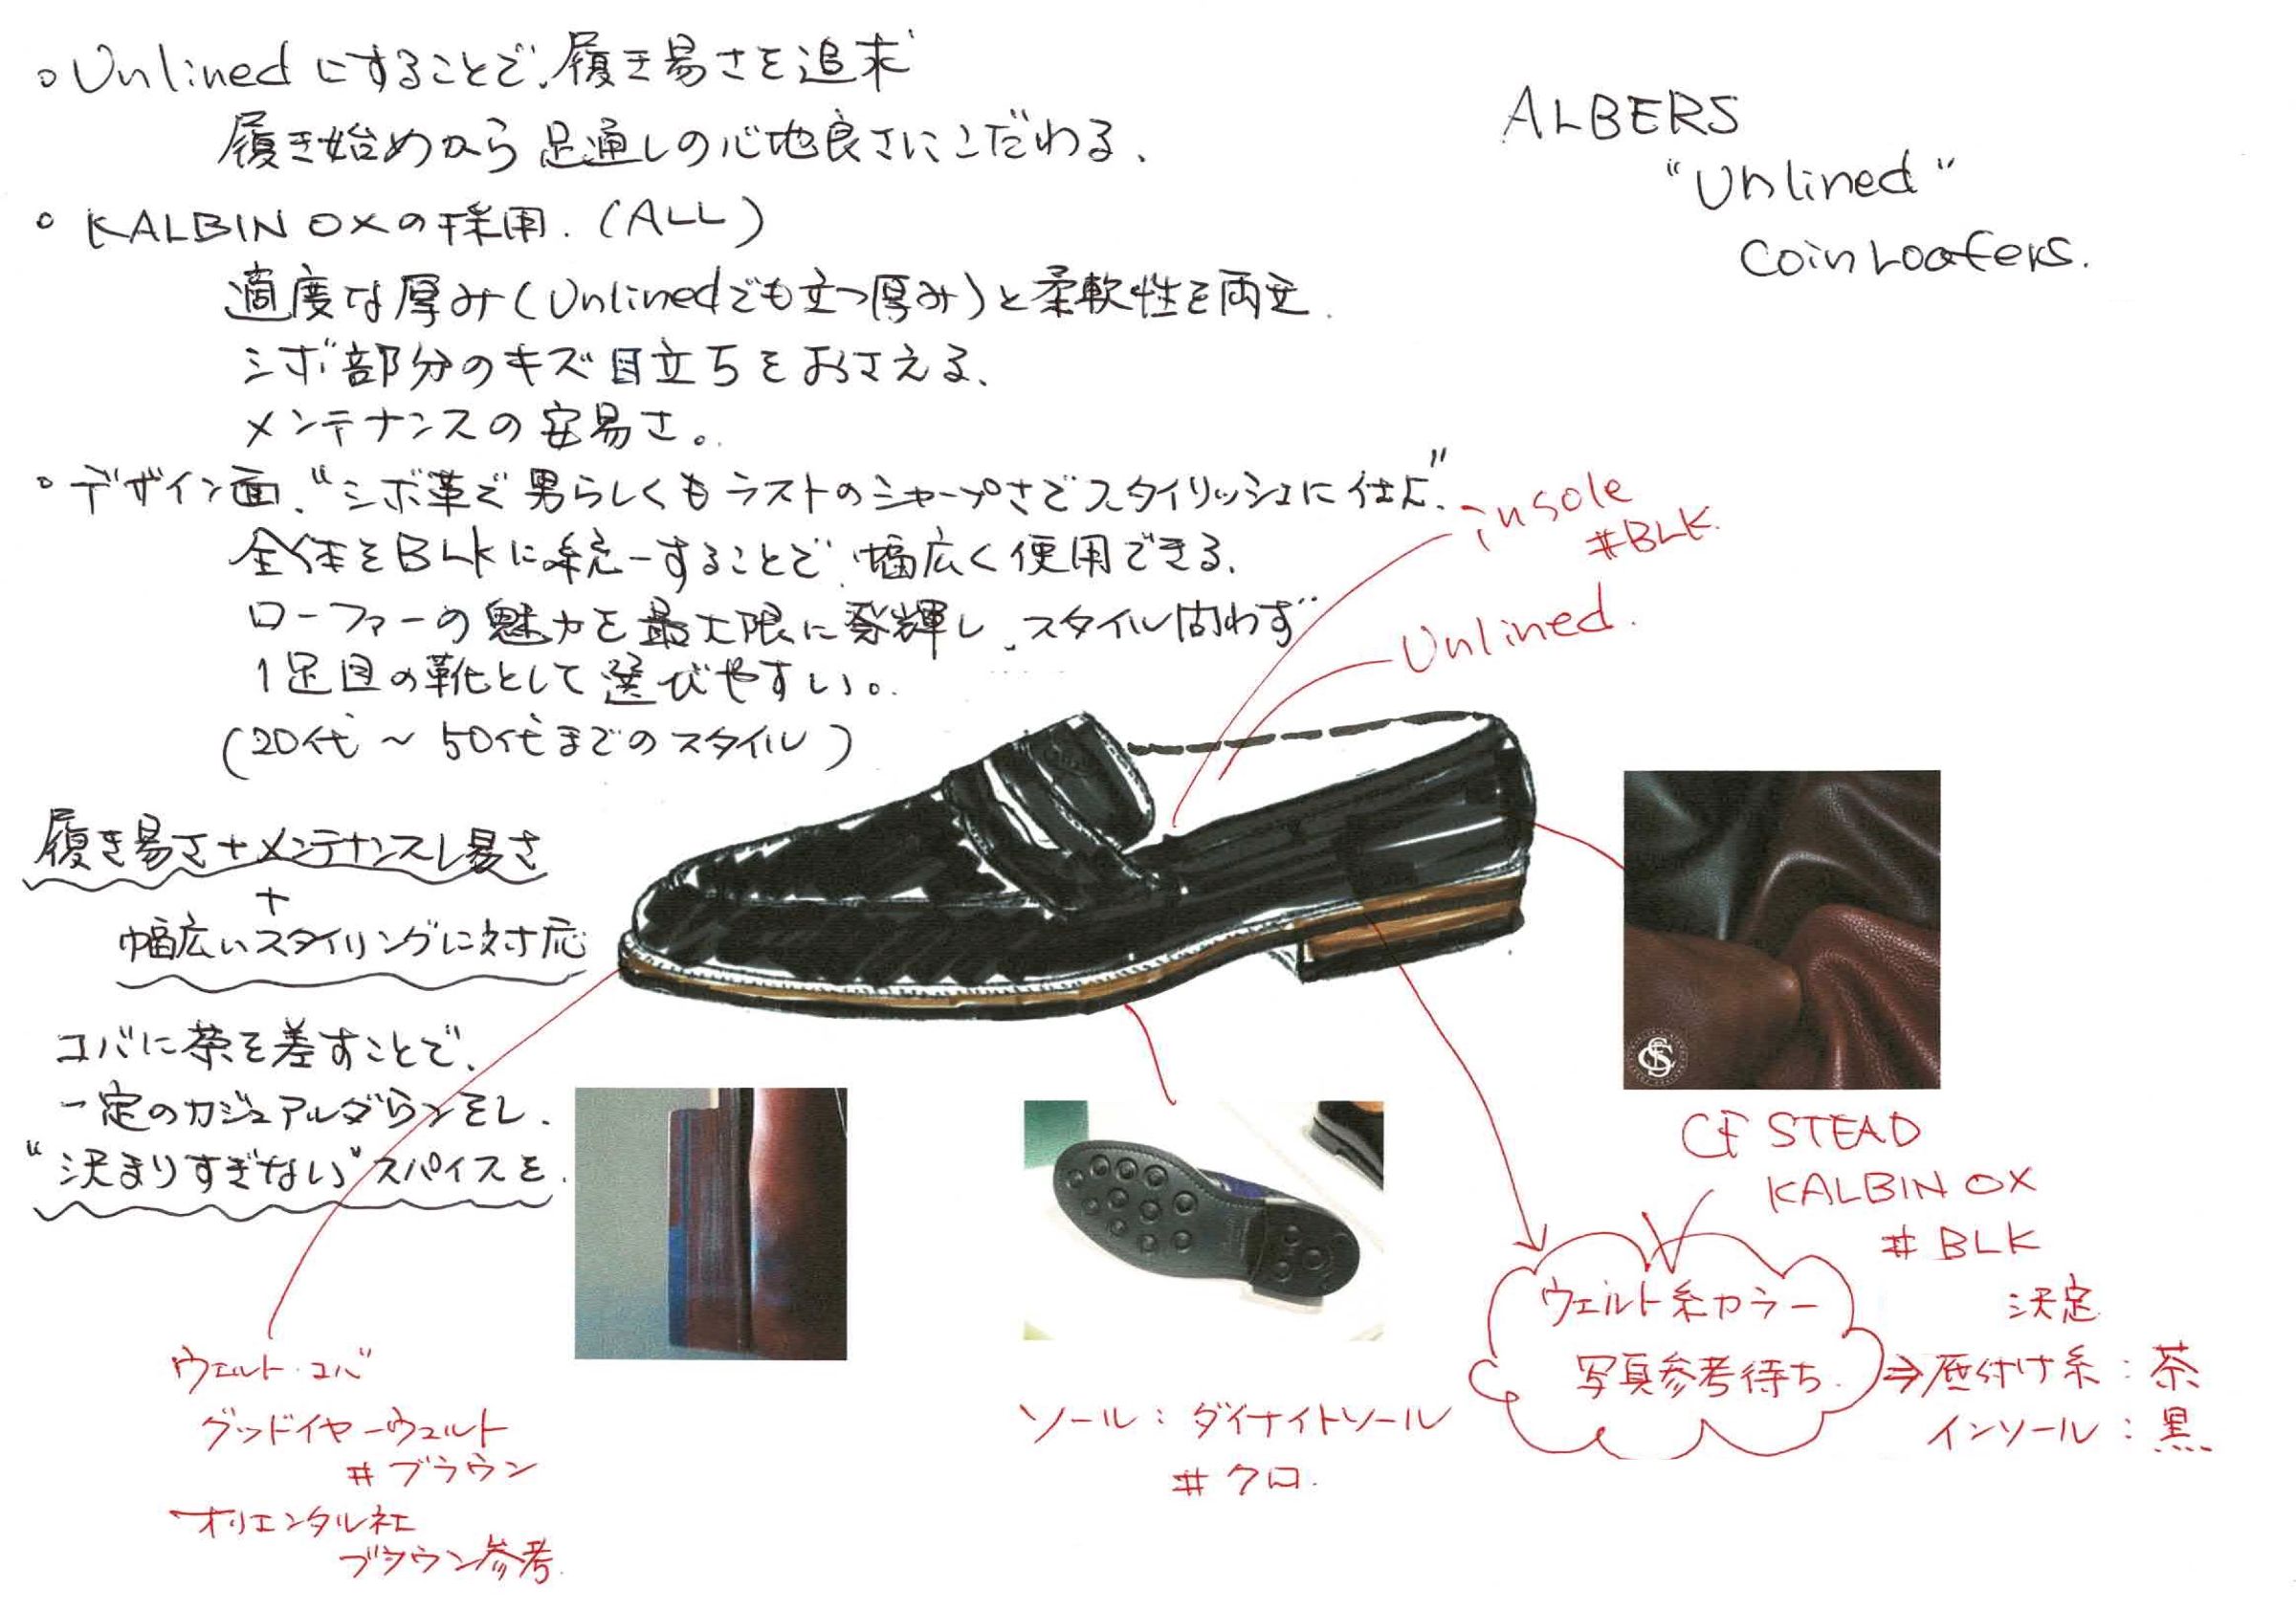 ALBERS
"Unlined"
Coin Loafers.
○ Unlinedにすることで、履き易さを追求
履き始めから足通しの心地良さにこだわる、
○ KALBIN OXの採用.(ALL)
適度な厚み(Unlinedでも立つ厚み)と柔軟性を両立.
シボ部分のキズ目立ちをおさえる、
メンテナンスの安易さ。
○ デザイン面、"シボ革で男らしくもラストのシャープさでスタイリッシュに仕上"
全体をBLKに統一することで、幅広く使用できる.
ローファーの魅力を最大限に発揮し、スタイル問わず
1足目の靴として選びやすい。
(20代〜50代までのスタイル)
履き易さ+メンテナンスし易さ
+
幅広いスタイリングに対応
コバに茶を差すことで、
一定のカジュアルダウンをし、
"決まりすぎない"スパイスを.
insole
#BLK.
Unlined.
CF STEAD
KALBIN OX
#BLK
決定
ウェルト糸カラー
写真参考待ち.
⇒底付け糸:茶
インソール:黒
ソール:ダイナイトソール
#クロ.
ウェルト・コバ
グッドイヤーウェルト
#ブラウン
オリエンタル社
ブラウン参考.